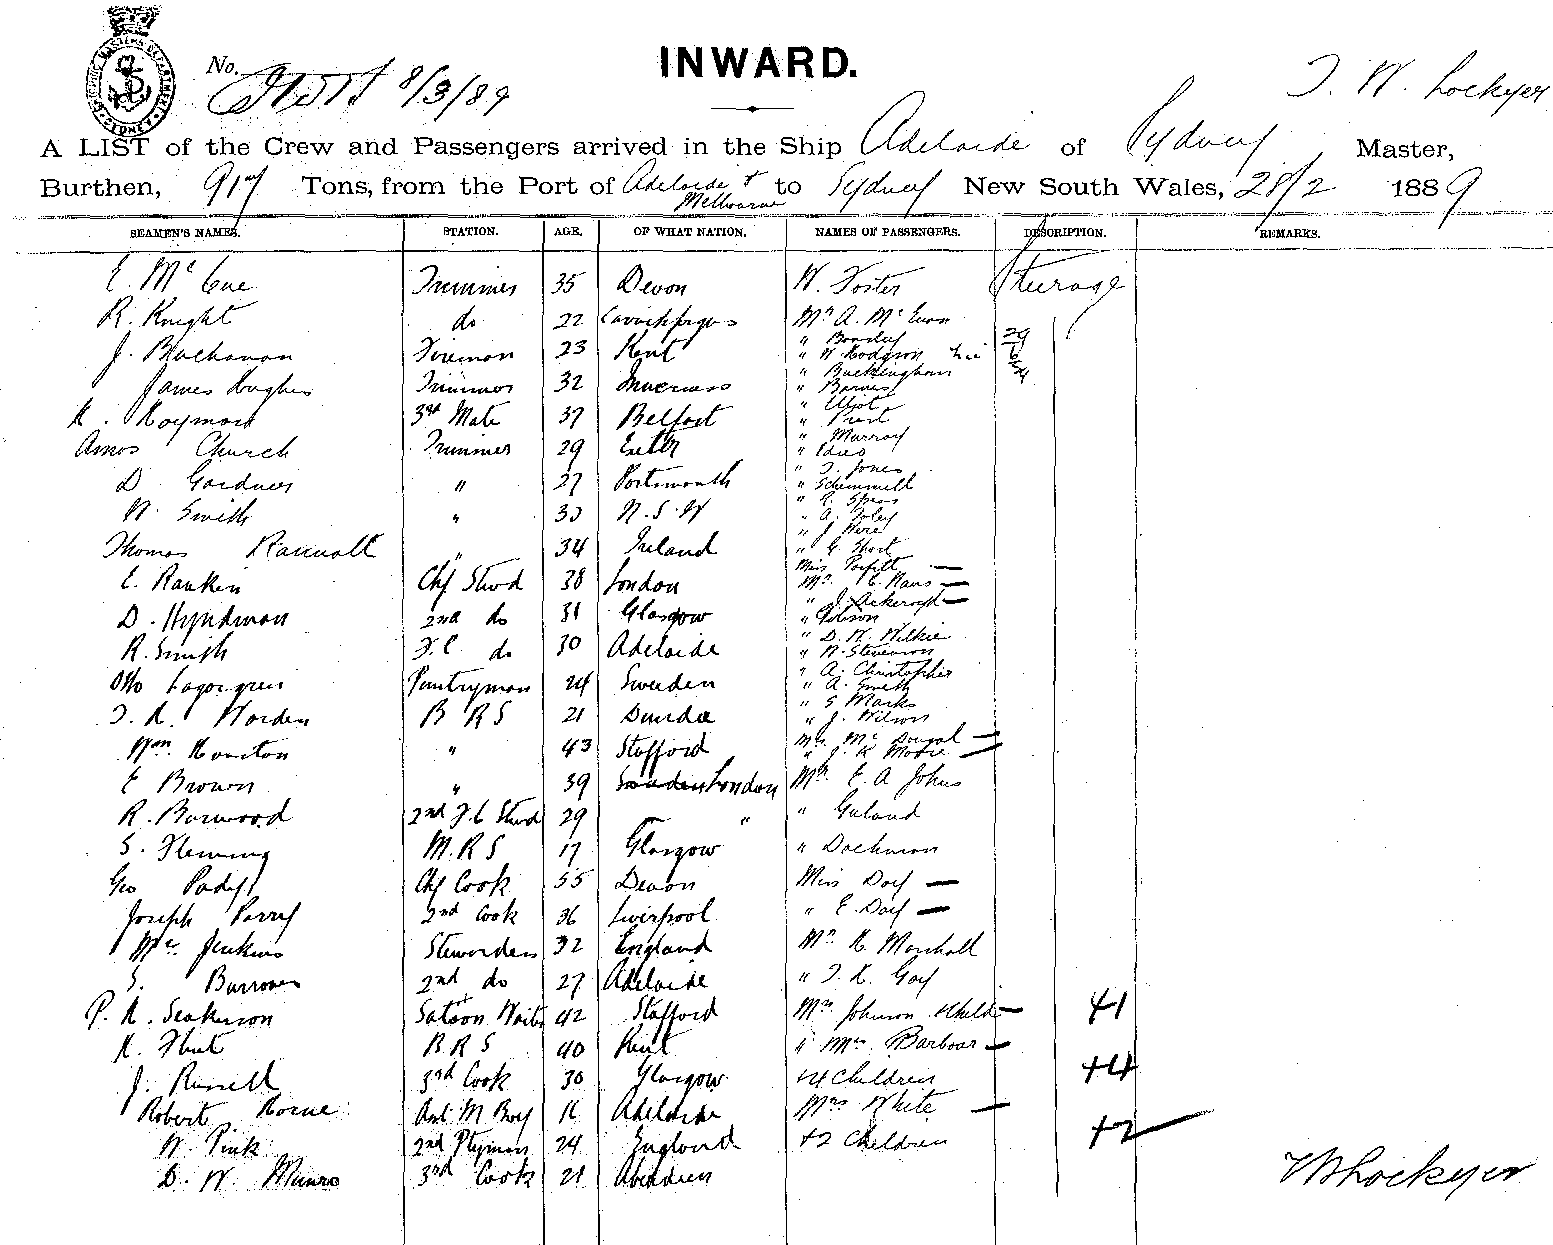 SHIPPING MASTERS DEPARTMENT SYDNEY
No. 8/3/89
INWARD.
T. W. Lockyer
A LIST of the Crew and Passengers arrived in the Ship Adelaide of Sydney Master,
Burthen, 917 Tons, from the Port of Adelaide & Melbourne to Sydney New South Wales, 28/2 1889
SEAMEN'S NAMES. STATION. AGE. OF WHAT NATION. NAMES OF PASSENGERS. DESCRIPTION. REMARKS.
E. McCue Trimmer 35 Devon W. Foster Steerage
R. Knight do 22 Carrickfergus Mr A. McEwan
J. Buchanan Fireman 23 Kent " Boosley
" W. Hodgson
James Hughes Trimmer 32 Inverness " Buckingham
" Barnes
H. Haymon 3rd Mate 37 Belfast " Eliot
" Priest
Amos Church Trimmer 29 Exeter " Murray
D Gardner " 27 Portsmouth " T. Jones
" Schimmelt
W. Smith " 30 N. S. W " A. Foley
Thomas " 34 Ireland " G. Short
Miss Porfitt —
E. Rankin Chf Stwd 38 London Mrs E. Hans —
" J. Ackeroyd —
D. Hyndman 2nd do 31 Glasgow
R. Smith F.C. do 30 Adelaide " D. W. Wilkie
" N. Stevenson
Otto Lagergren Pantryman 24 Sweden " A. Christopher
" A. Smith
T. H. Worden B R S 21 Dundee " S Marks
" J. Wilson
Wm Houston " 43 Stafford Mrs McDougal —
" J. K Moore —
E Brown " 39 Sweden London Mr E. A Johns
R. Barwood 2nd F.C Stwd 29 " " Garland
S. Fleming M.R S 17 Glasgow " Dachman
Geo Padef Chf Cook 55 Devon Miss Day —
Joseph Parry 2nd Cook 36 Liverpool " E. Day —
Mrs Jenkins Stewardess 32 England Mr H. Marshall
S. Burrows 2nd do 27 Adelaide " T. H. Gay
P. H. Seakerson Saloon Waiter 42 Stafford Mrs Johnson & child — +1
H. Flint B R S 40 Kent " Mrs. Barbour —
J. Russell 3rd Cook 30 Glasgow +4 Children +4
Robert Horne Ant. M Boy 16 Adelaide Mrs White —
W. Pink 2nd Ptyman 24 England +2 Children +2
D. W. Munro 3rd Cook 21 Aberdeen
TW Lockyer